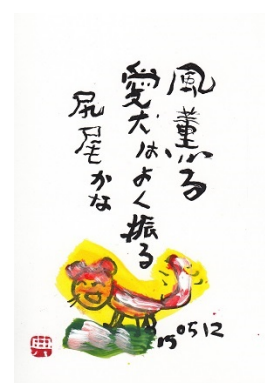 風薫る
愛犬はよく振る
尻尾かな
150512
典